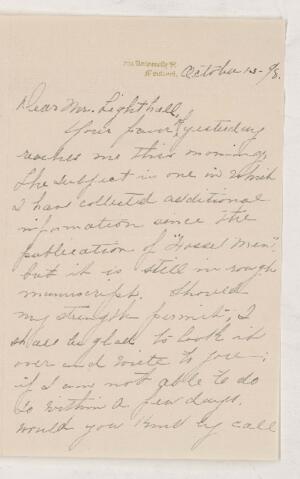 University St.
Montreal,
October 13 - /98.
Dear Mr. Lighthall,
Your favor of yesterday
reaches me this morning.
The subject is one in which
I have collected additional
information since the
publication of "Fossil Men";
but it is still in rough
manuscript. Should
my strength permit, I
shall be glad to look it
over and write to you;
if I am not able to do
so within a few days,
would you kindly call